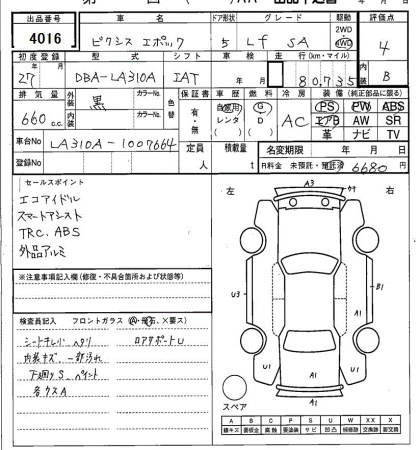 出品番号 車名 ドア形状 グレード 駆動 評価点
4016 ピクシス エポック 5 Lf SA 2WD 4WD 4
初度登録 型式 シフト 車検 走行(km・マイル) 内装
27年 月 DBA-LA310A IAT 年 月 80,735 B
排気量 外装 黒 カラーNo. 色替 保証書 車歴 燃料 冷房 装備 (純正部品に限る)
660 c.c. 内装 カラーNo. 有・無 自家用 レンタ G D AC PS PW ABS
エアB AW SR
革 ナビ TV
車台No LA310A-1007664 定員 積載量 名変期限 年 月 日
登録No 人 t R料金 未預託・預託済 6680 円
セールスポイント
エコアイドル
スマートアシスト
TRC、ABS
外品アルミ
※注意事項記入欄(修復・不具合箇所および状態等)
検査員記入 フロントガラス(A・飛石、×要ス)
シートチレリ ヘタリ ロアサポートU
内装キズ、一部汚れ
下廻りS、ペイント
各ウスA
左 右
A3
U3
B1
U1
U1
A1
A1
スペア
A B C P S U W XX X
線キズ 要板金 腐蝕 要塗装 サビ 凹凸 補修跡 交換跡 要交換